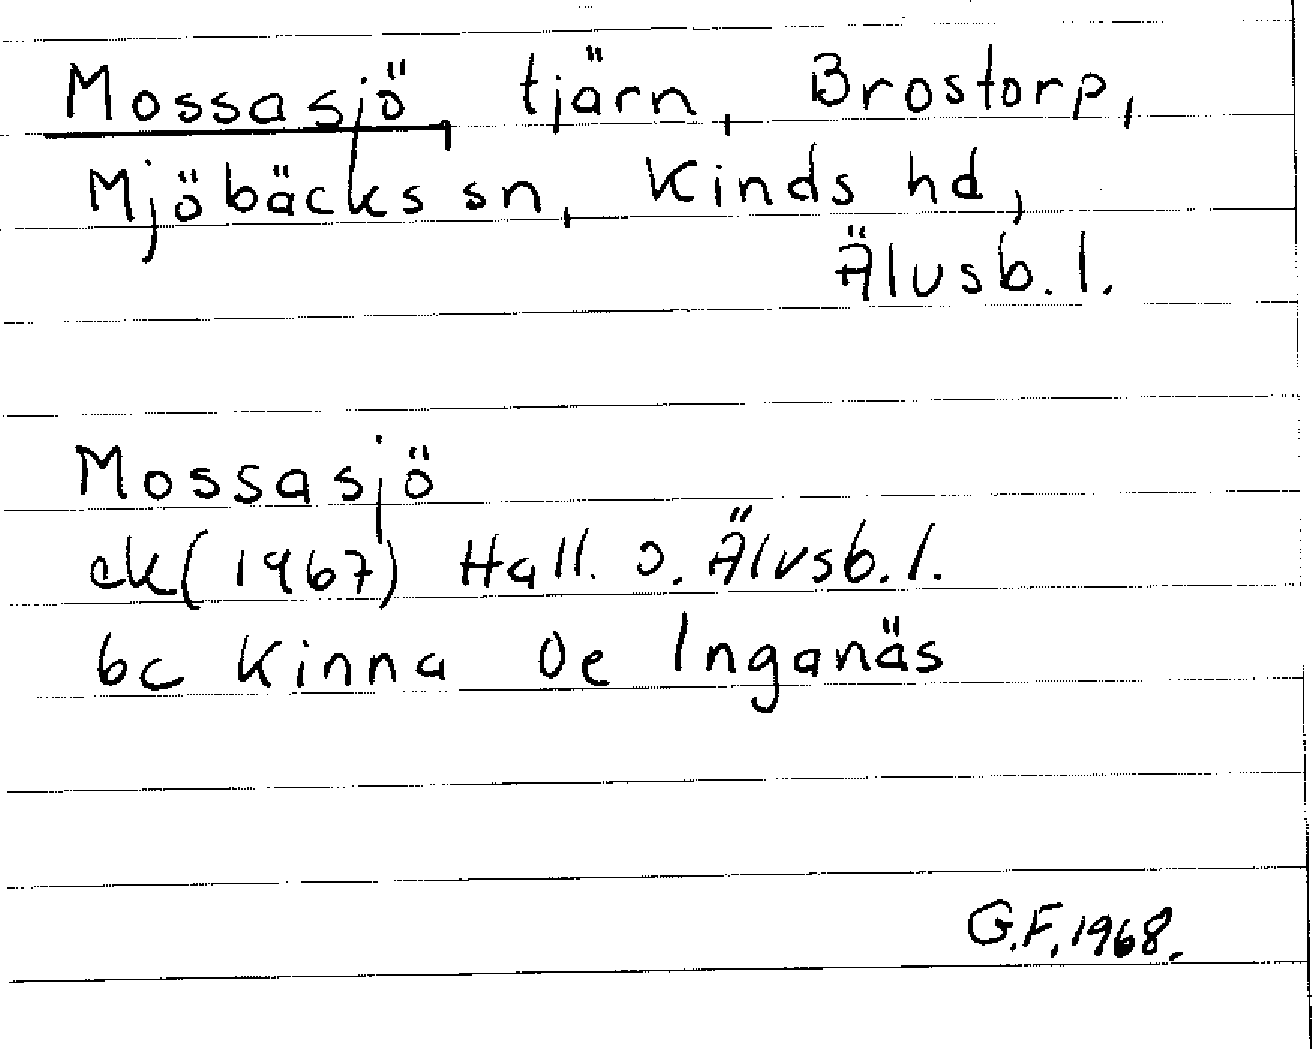 Mossasjö, tjärn, Brostorp,
Mjöbäcks sn, Kinds hd,
Älvsb. l.
Mossasjö
ek (1967) Hall. o. Älvsb. l.
6c Kinna 0e Inganäs
G.F. 1968.